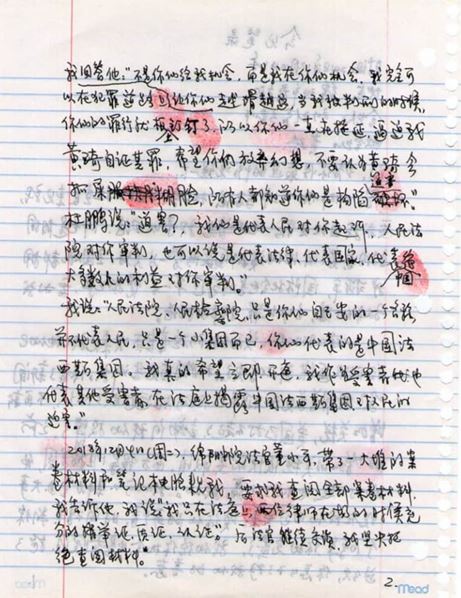 我回答他:“不是你们给我机会,而是我在你们机会,我完全可
以在犯罪道路上让你们走得越远,当我被判刑的时候,
你们的罪行就板上钉钉了,所以你们一直在拖延,逼迫我
黄琦自证其罪,希望你们放弃幻想,不要认为黄琦会
所有人都知道你们是构陷迫害”
杜鹏说“迫害?,我们是代表人民对你起诉,人民法
院对你审判,也可以说是代表法律,代表国家,代表中国
大多数人的利益对你审判。”
我说:“人民法院、人民检察院,只是你们自己安的一个名称
并不代表人民,只是一个小集团而已,你们代表的是中国法
西斯集团,我真的希望立即开庭,我作为受害者,也
代表其他受害者,在法庭上揭露中国法西斯集团对人民的
迫害。”
2018年12月4日(周二),绵阳中院法官 带了一大堆的案
卷材料和笔记本电脑找我,要求我查阅全部案卷材料,
我告诉他,我说“我只在法庭上,两位律师在场的时候充
分的举证、质证、认证。”后法官继续交涉,我坚决拒
绝查阅材料。”
2.
Mead